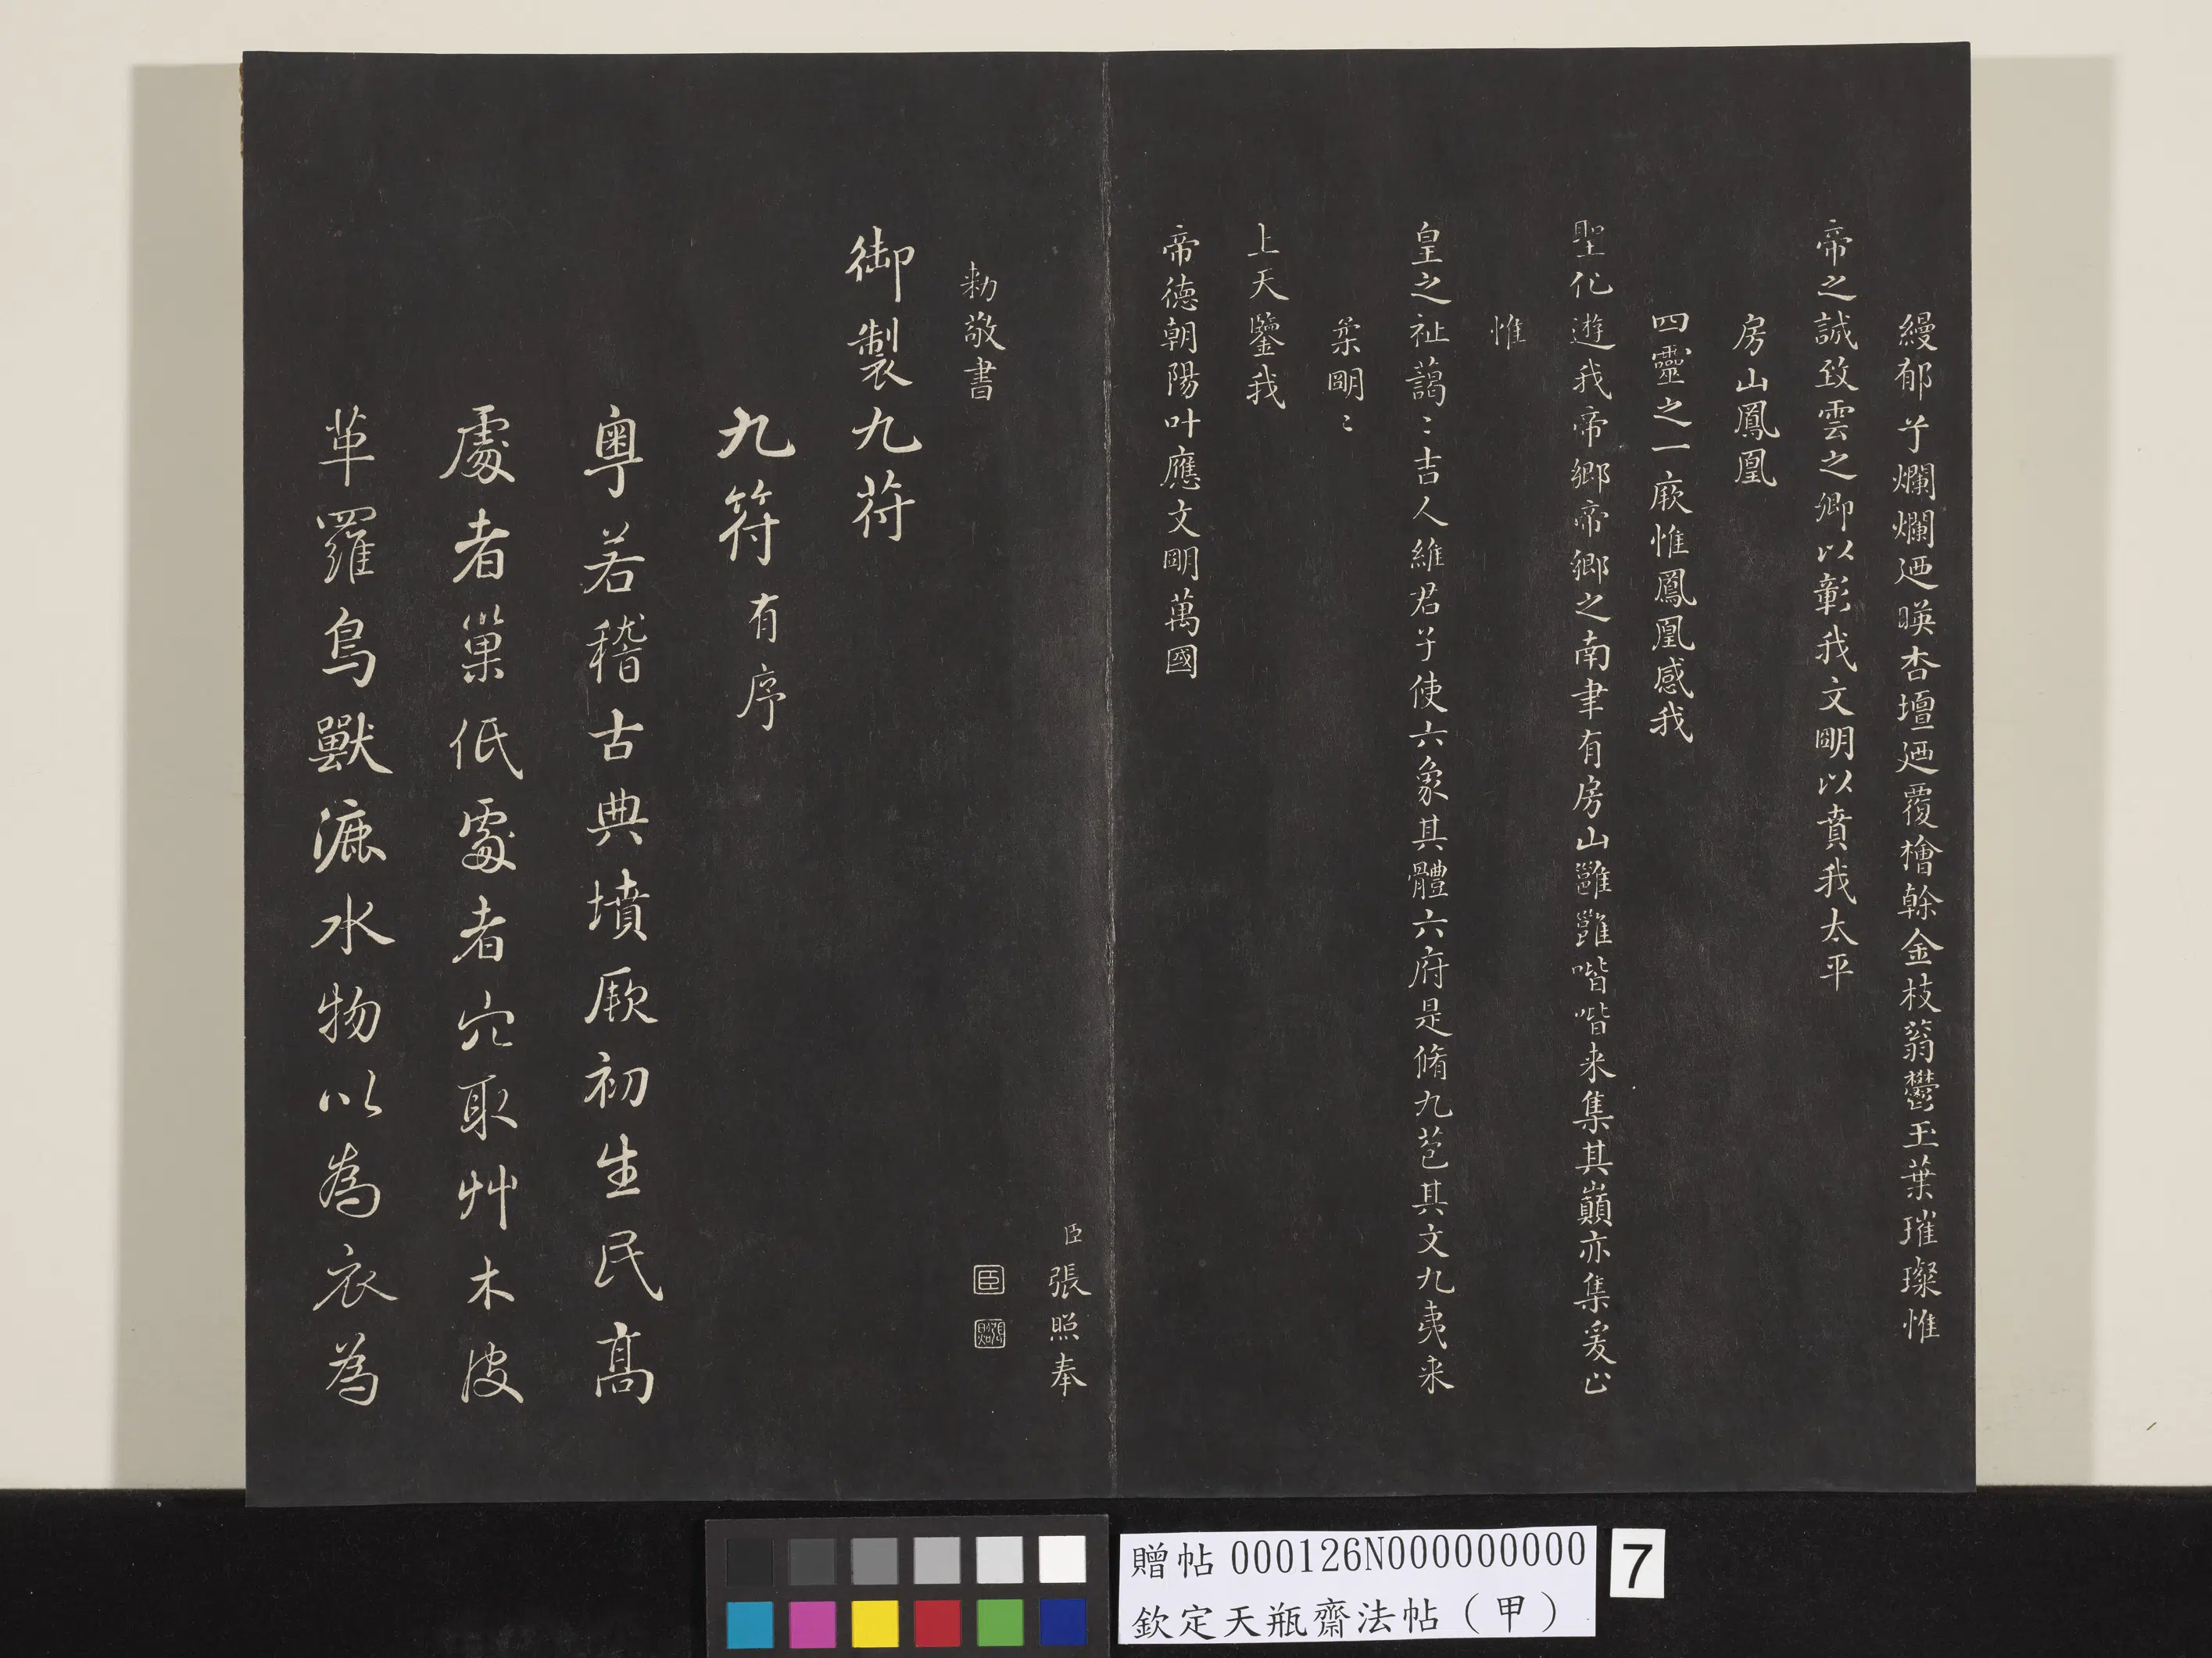 縵郁兮爛爛廼暎杏壇廼覆檜榦金枝蓊鬱玉葉璀璨惟
帝之誠致雲之卿以彰我文明以賁我太平
房山鳳凰
四靈之一厥惟鳳凰感我
聖化遊我帝鄉帝鄉之南聿有房山雝雝喈喈来集其巔亦集爰止
惟
皇之祉藹〻吉人維君子使六象其體六府是脩九苞其文九夷来
柔明〻
上天鑒我
帝德朝陽叶應文明萬國
臣張照奉
勑敬書
臣
照
御製九符
九符有序
粵若稽古典墳厥初生民高
處者巢低處者穴取艸木皮
革羅鳥獸漉水物以為衣為
贈帖 000126N000000000
欽定天瓶齋法帖（甲）
7